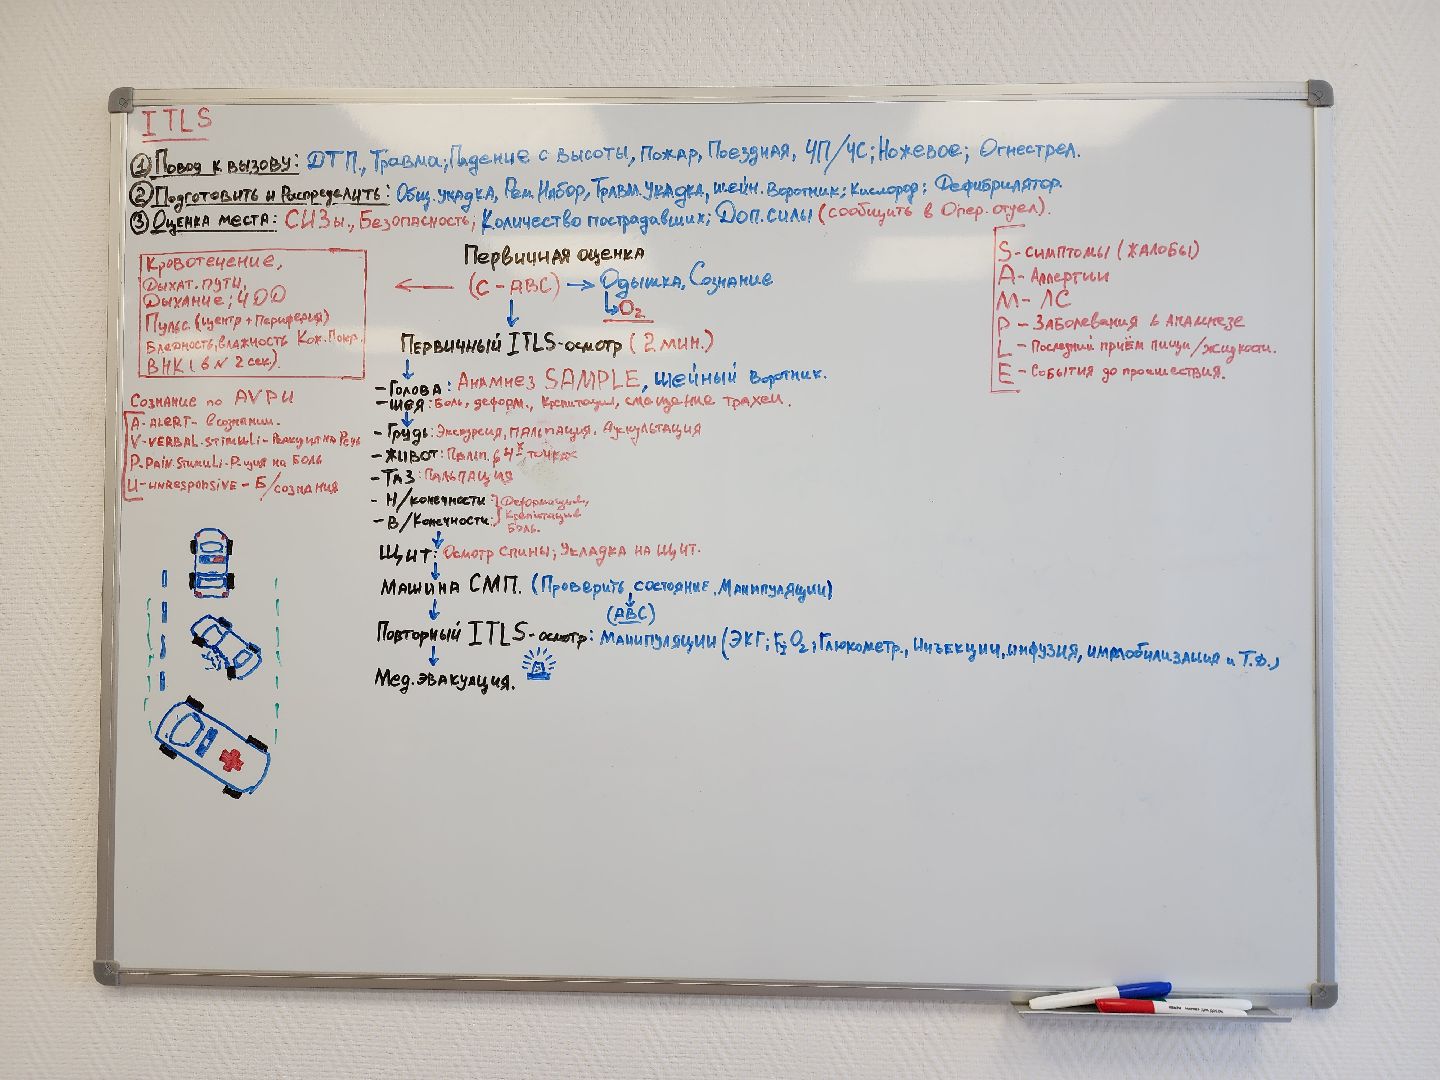 ITLS
① Повод к вызову: ДТП., Травма; Падение с высоты, Пожар, Поездная, ЧП/ЧС; Ножевое; Огнестрел.
② Подготовить и Распределить: Общ. укадка, Рем. Набор, Травм. Укадка, шейн. Воротник; Кислород; Дефибрилятор.
③ Оценка места: СИЗы., Безопасность; Количество пострадавших; Доп. силы (сообщить в Опер. отдел).
Первичная оценка
(С - АВС) → Одышка, Сознание
O₂
Кровотечение,
Дыхат. пути,
Дыхание; ЧДД
Пульс. (центр + Периферия)
Бледность, влажность Кож. Покр.
ВНК (в N 2 сек.).
Первичный ITLS-осмотр (2 мин.)
- Голова: Анамнез SAMPLE, шейный Воротник.
- шея: Боль, деформ., Крепитация, смещение трахеи.
- Грудь: Экскурсия, пальпация. Аускультация
- Живот: Пальп. в 4х точках
- Таз: Пальпация
- Н/конечности: Деформация,
- В/Конечности: Крепитация
Боль.
Щит: Осмотр спины; Укладка на щит.
Машина СМП. (Проверить состояние, Манипуляции)
(АВС)
Повторный ITLS-осмотр: Манипуляции (ЭКГ; O₂; Глюкометр., Инъекции, инфузия, иммобилизация и Т.Д.)
Мед. эвакуация.
S - Симптомы (жалобы)
A - Аллергии
M - ЛС
P - Заболевания в анамнезе
L - Последний приём пищи/жидкости.
E - События до происшествия.
Сознание по AVPU
A - ALERT - в сознании.
V - VERBAL. STIMULI - Реакция на Речь
P - PAIN. STIMULI - Р-ция на Боль
U - UNRESPONSIVE - Б/сознания